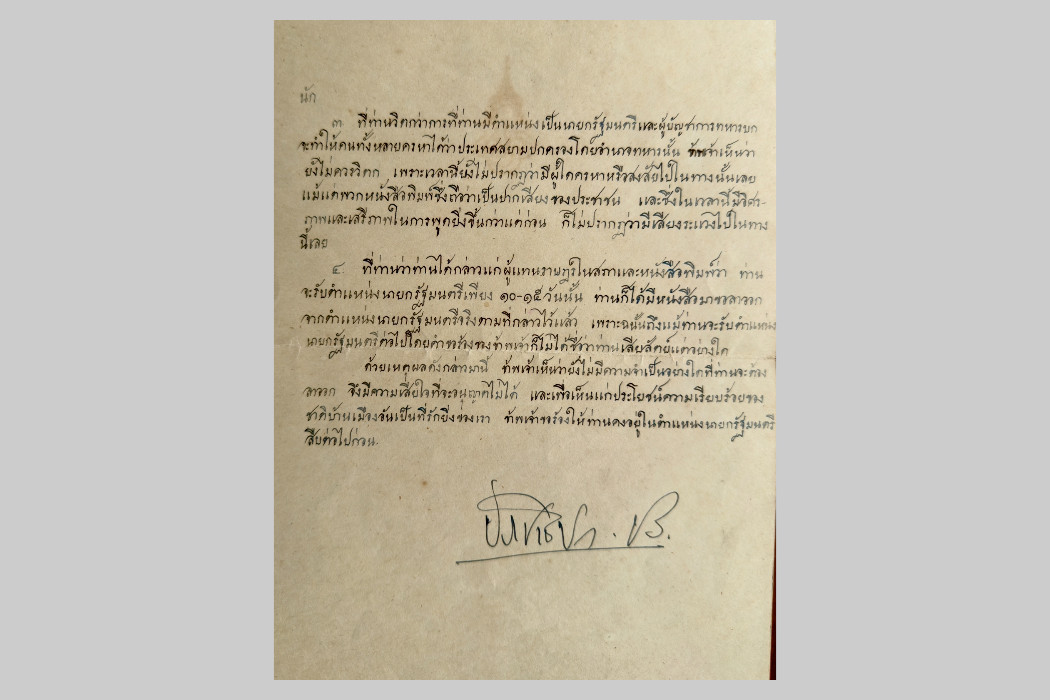 นัก
๓. ที่ท่านวิตกว่าการที่ท่านมีตำแหน่งเป็นนายกรัฐมนตรีและผู้บัญชาการทหารบก
จะทำให้คนทั้งหลายครหาได้ว่าประเทศสยามปกครองโดยอำนาจทหารนั้น ข้าพเจ้าเห็นว่า
ยังไม่ควรวิตก เพราะเวลานี้ยังไม่ปรากฏว่ามีผู้ใดครหาหรือสงสัยไปในทางนั้นเลย
แม้แต่พวกหนังสือพิมพ์ซึ่งถือว่าเป็นปากเสียงของประชาชน และซึ่งในเวลานี้มีอิศระ-
ภาพและเสรีภาพในการพูดยิ่งขึ้นกว่าแต่ก่อน ก็ไม่ปรากฏว่ามีเสียงระแวงไปในทาง
นี้เลย
๔. ที่ท่านว่าท่านได้กล่าวแก่ผู้แทนราษฎรในสภาและหนังสือพิมพ์ว่า ท่าน
จะรับตำแหน่งนายกรัฐมนตรีเพียง ๑๐-๑๕ วันนั้น ท่านก็ได้มีหนังสือมาขอลาออก
จากตำแหน่งนายกรัฐมนตรีจริงตามที่กล่าวไว้แล้ว เพราะฉนั้นถึงแม้ท่านจะรับตำแหน่ง
นายกรัฐมนตรีต่อไปโดยคำขอร้องของข้าพเจ้าก็ไม่ได้ชื่อว่าท่านเสียสัตย์แต่อย่างใด
ด้วยเหตุผลดังกล่าวมานี้ ข้าพเจ้าเห็นว่ายังไม่มีความจำเป็นอย่างใดที่ท่านจะต้อง
ลาออก จึงมีความเสียใจที่จะอนุญาตไม่ได้ และเพื่อเห็นแก่ประโยชน์ความเรียบร้อยของ
ชาติบ้านเมืองอันเป็นที่รักยิ่งของเรา ข้าพเจ้าขอร้องให้ท่านคงอยู่ในตำแหน่งนายกรัฐมนตรี
สืบต่อไปก่อน.
ประชาธิปก. ปร.